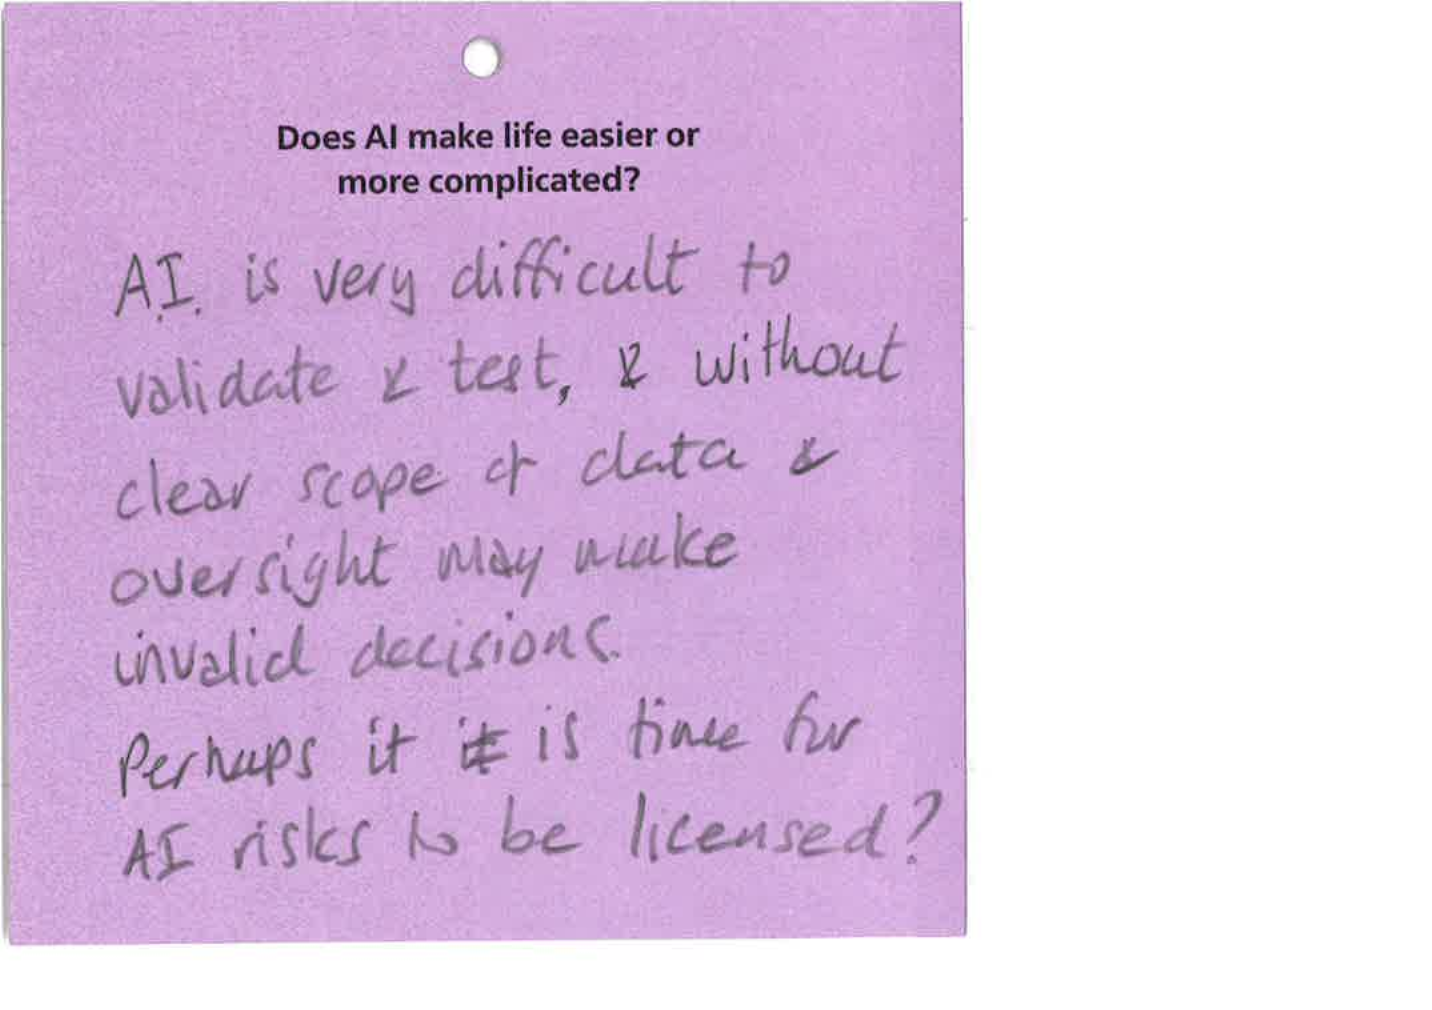 Does AI make life easier or
more complicated?
A.I. is very difficult to
validate & test, & without
clear scope of data &
oversight may make
invalid decisions.
Perhaps it it is time for
AI risks to be licensed?